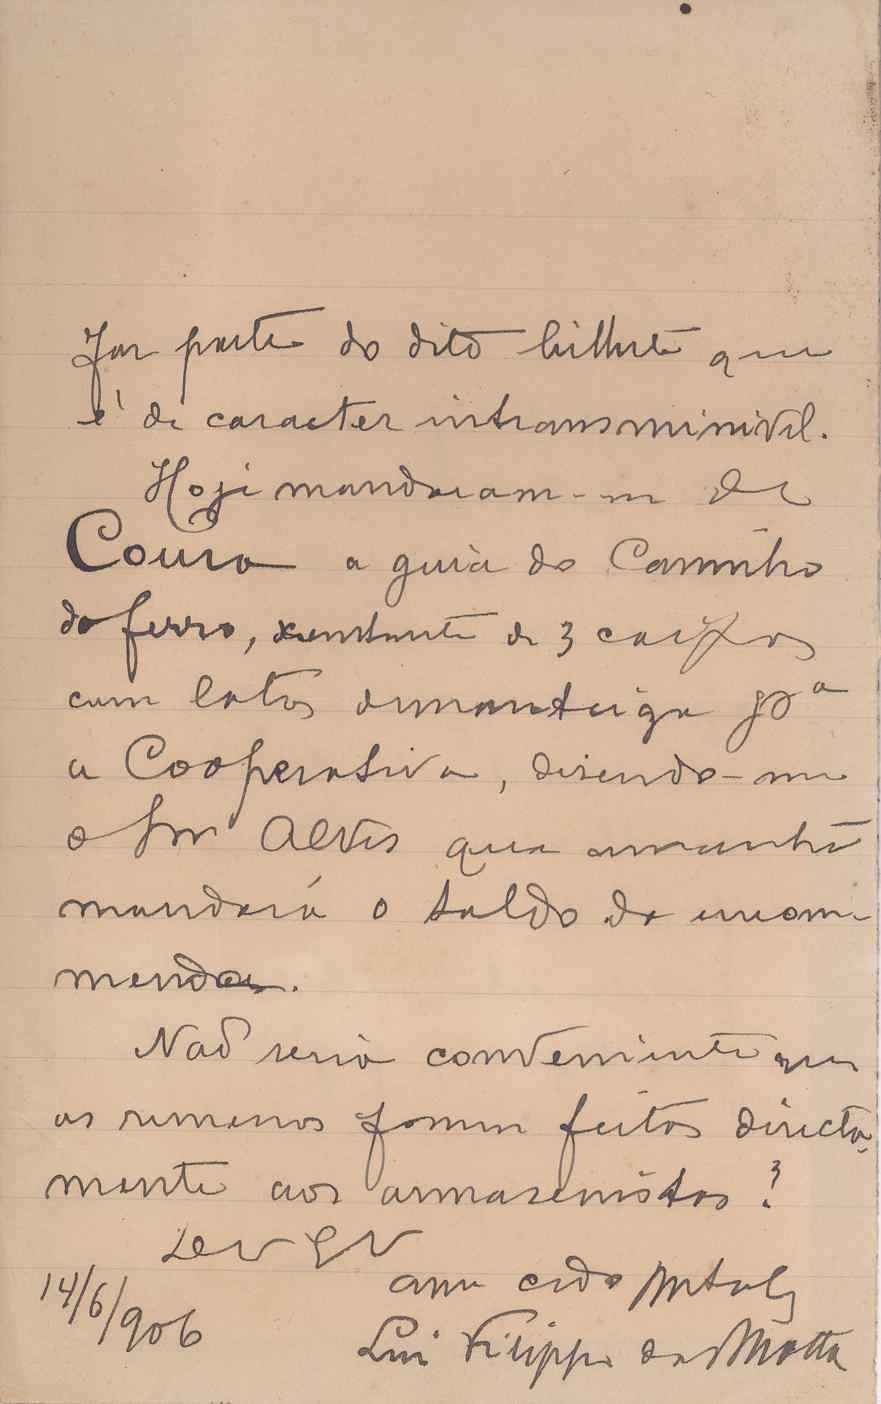 por parte do dito bilhete que
é de caracter intransminivel.
Hoje mandaram-me de
Coura a guia do Caminho
do ferro, constante de 3 caixas
com latas de manteiga pª
a Cooperativa, disendo-me
o Snr Alves que amanhã
mandará o saldo da encom
menda.
Não seria conveniente que
as remenos fossem feitos directa-
mente aos armasenistas?
De V Ex
14/6/906
Luiz Filippe da Motta